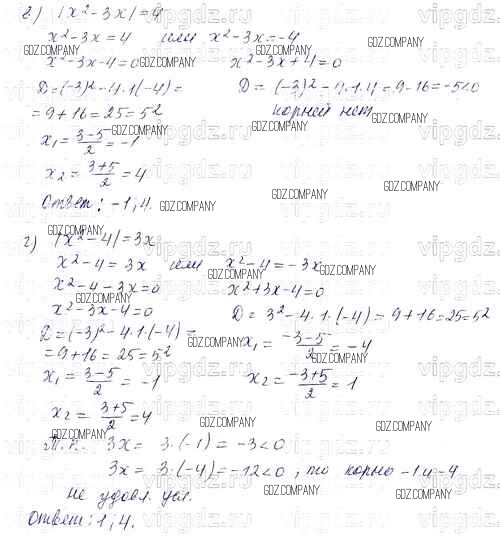 в) |x²-3x|=4
x²-3x=4 или x²-3x=-4
x²-3x-4=0 x²-3x+4=0
D=(-3)²-4·1(-4)= D=(-3)²-4·1·4=9-16=-5<0
=9+16=25=5² корней нет
x₁=(3-5)/2=-1
x₂=(3+5)/2=4
Ответ: -1; 4.
г) |x²-4|=3x
x²-4=3x или x²-4=-3x
x²-4-3x=0 x²+3x-4=0
x²-3x-4=0 D=3²-4·1·(-4)=9+16=25=5²
D=(-3)²-4·1·(-4)= x₁=(-3-5)/2=-4
=9+16=25=5²
x₁=(3-5)/2=-1 x₂=(-3+5)/2=1
x₂=(3+5)/2=4
Т.к. 3x=3·(-1)=-3<0
3x=3·(-4)=-12<0, то корно -1 и -4
не удовл. усл.
Ответ: 1; 4.
GDZ.COMPANY
vipgdz.ru